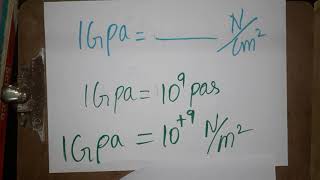 1Gpa = ____ N/cm²
1Gpa = 10⁹ pas
1Gpa = 10⁺⁹ N/m²